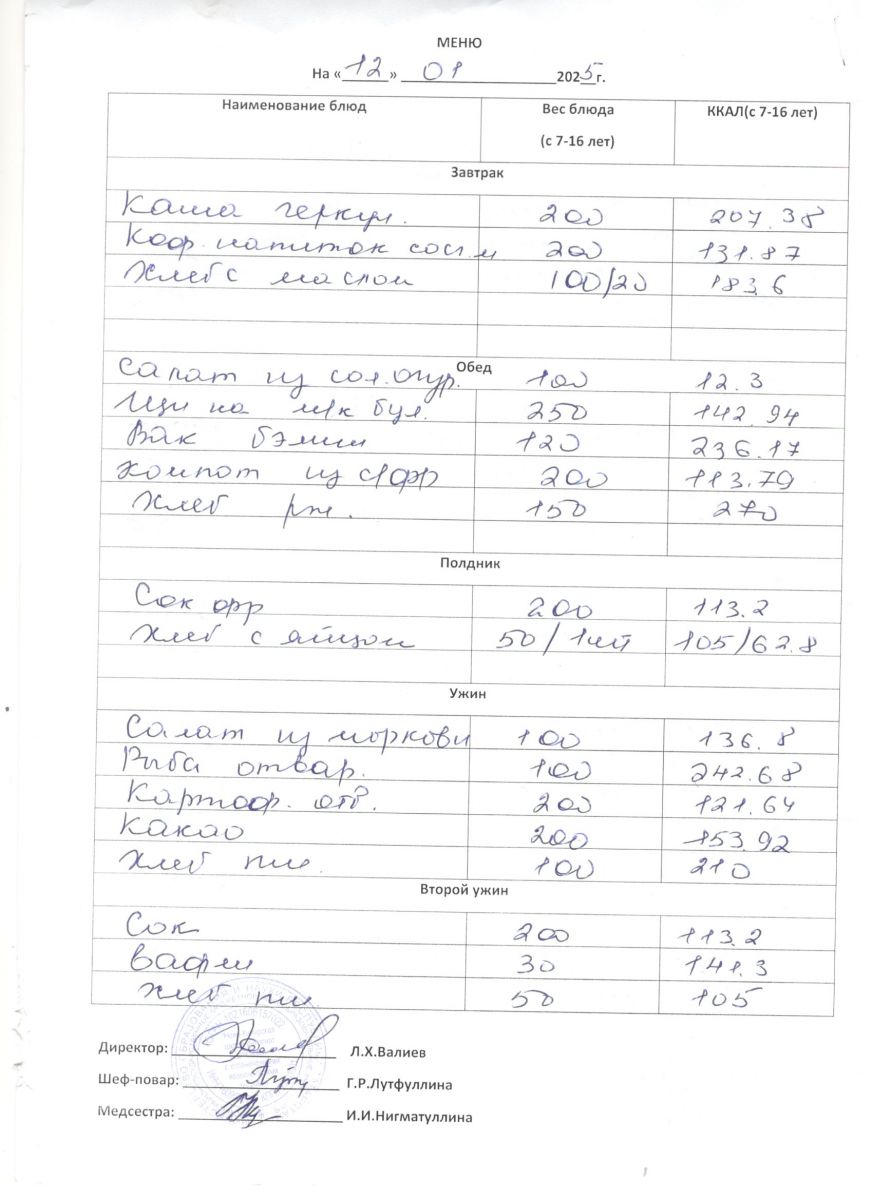 МЕНЮ
На «12» 01 2025 г.
Наименование блюд Вес блюда (с 7-16 лет) ККАЛ(с 7-16 лет)
Завтрак
Каша геркул. 200 207.38
Коф. напиток со сг.м 200 131.87
Хлеб с маслом 100/20 183.6
Обед
Салат из сол.огур. 100 12.3
Щи на м/к бул. 250 142.94
Вак бэлиш 120 236.17
Компот из с/фр 200 113.79
Хлеб рж. 150 270
Полдник
Сок фр 200 113.2
Хлеб с яйцом 50/1шт 105/62.8
Ужин
Салат из моркови 100 136.8
Рыба отвар. 100 242.68
Картоф. отв. 200 121.64
Какао 200 153.92
Хлеб пш. 100 210
Второй ужин
Сок 200 113.2
Вафли 30 141.3
Хлеб пш 50 105
Директор: Л.Х.Валиев
Шеф-повар: Г.Р.Лутфуллина
Медсестра: И.И.Нигматуллина